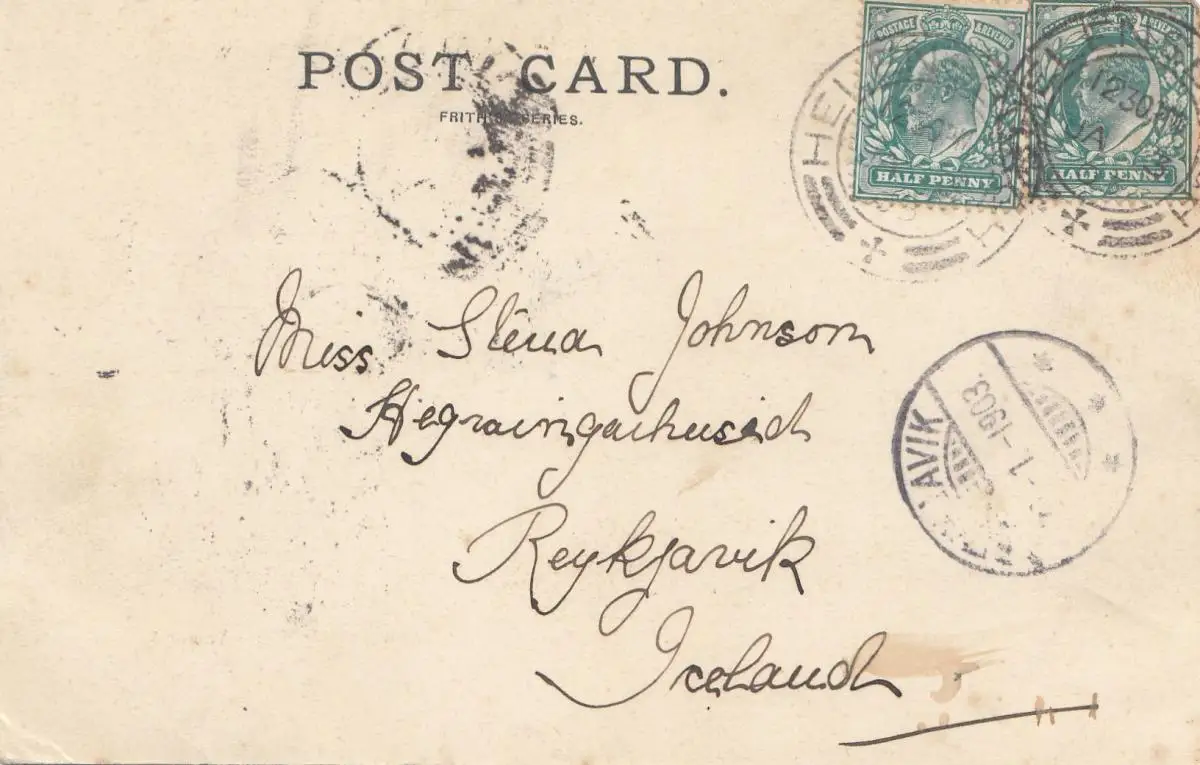 POST CARD.
FRITH'S SERIES.
POSTAGE & REVENUE
HALF PENNY
POSTAGE & REVENUE
HALF PENNY
1230PM
JA
Miss Stéua Johnson
Hegraingarhusid
Reykjavik
Iceland
AVIK
1 - 1903.